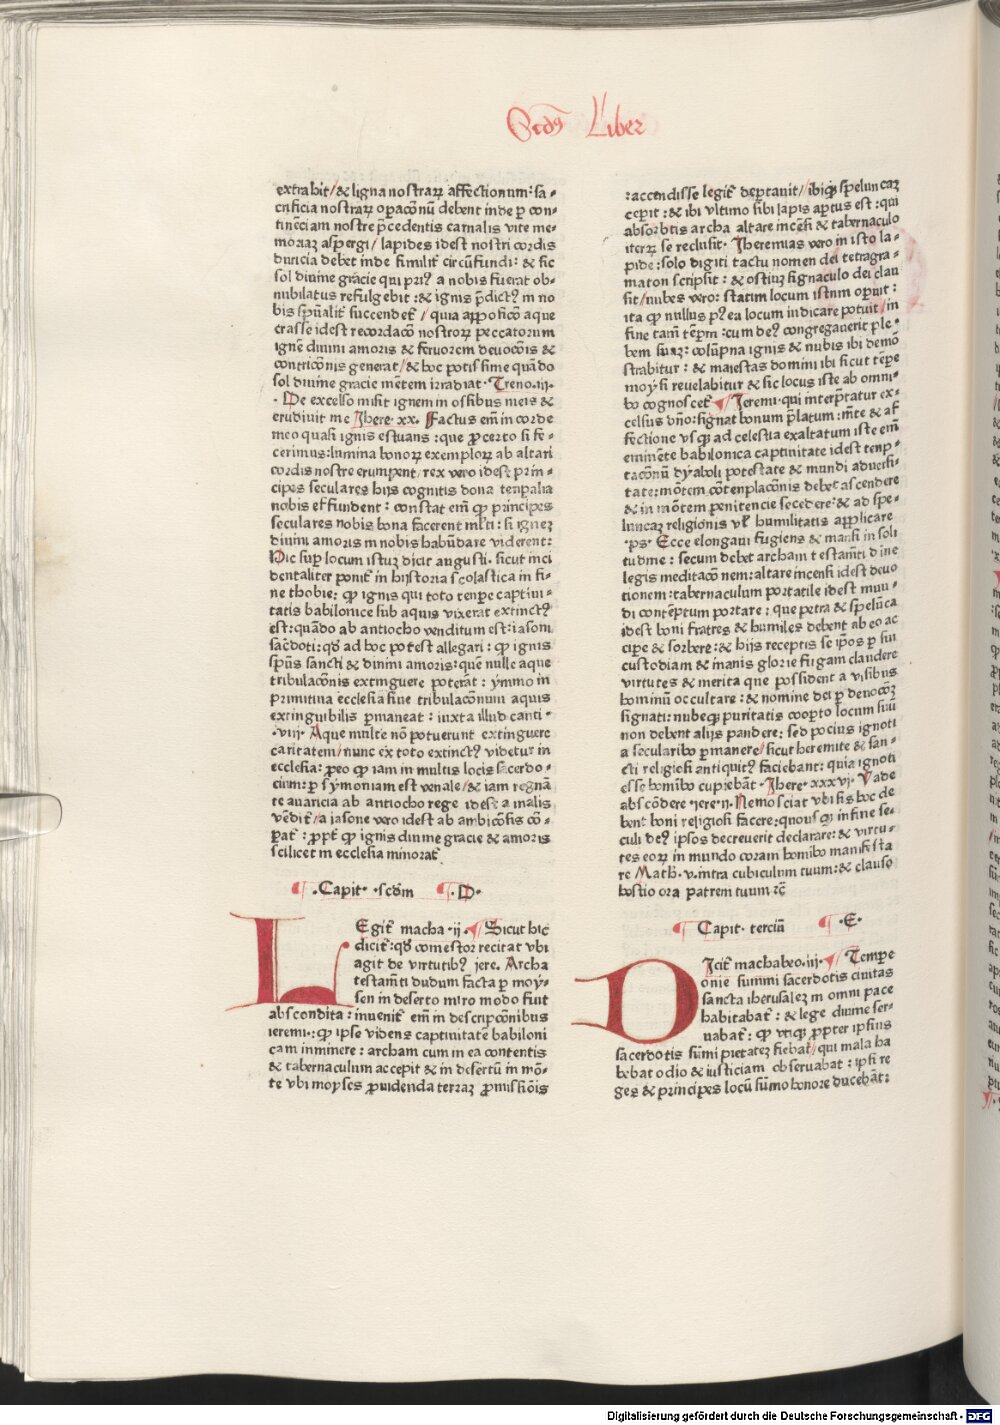 Scdꝰ Liber
extrahit/ & ligna nostraꝝ affectionum: sa-
crificia nostraꝝ opacōnū debent inde p con-
tinēciam nostre pcedentis carnalis vite me-
moriaz aspergi/ lapides idest nostri cordis
duricia debet inde similiř circūfundi: & sic
sol diuine gracie qui priꝰ a nobis fuerat ob-
nubilatus refulgebit: & ignis pdictꝰ in no
bis spūalit̄ succendet̄/ quia a ppoſico aque
crasse idest recordacō nostroꝝ peccatorum
ignē diuini amoris & feruorem deuocōis &
contricōnis generat/ & hoc potissime quādo
sol diuine gracie mētem irradiat. Treno.iii.
. De excelso misit ignem in ossibus meis &
erudiuit me Jhere.xx. Factus em̄ in corde
meo quasi ignis estuans: que p certo si fe-
cerimus: lumina bonoꝝ exemploꝝ ab altari
cordis nostre erumpent/ rex vero idest prin-
cipes seculares hijs cognitis dona tenpalia
nobis effundent: constat em̄ qp principes
seculares nobis bona facerent ml̄ti: si ignez
diuini amoris in nobis habūdare viderent:
Hic sup locum istuz dicit augusti. sicut inci
dentaliter ponit̄ in hijstoria scolastica in fi-
ne thobie: qp ignis qui toto tenpe captiui-
tatis babilonice sub aquis vixerat extinctꝰ
est: quādo ab antiocho venditum est: iasoni
sac̄doti: qd̄ ad hoc potest allegari: qp ignis
spūs sancti & diuini amoris: quē nulle aque
tribulacōnis extinguere poterāt: ymmo in
primitiua ecclesia sine tribulacōnum aquis
extinguibilis pmaneat: iuxta illud canti-
.viij. Aque multe nō potuerunt extinguere
caritatem/ nunc ex toto extinctꝰ videtur in
ecclesia: p eo qp iam in multis locis sacerdo-
cium: p symoniam est venale/ & iam regnā
te auaricia ab antiocho rege idest a malis
vēdit̄/ a iasone vero idest ab ambicōsis cō-
pat̄: ppt̄ qp ignis diuine gracie & amoris
scilicet in ecclesia minorat̄
¶ .Capit̄ .scdm ¶ .D.
LEgit̄ macha.ij. ¶ Sicut hic
dicit̄: qd̄ comestoz recitat vbi
agit de virtutibꝰ jere. Archa
testamēti dudum facta p moy-
sen in deserto miro modo fuit
abscondita: inuenit̄ em̄ in descripcōnibus
ieremi: qp ipse videns captiuitatē babiloni
cam inminere: archam cum in ea contentis
& tabernaculum accepit & in desertū in mō-
te vbi moyses p uidenda terraz pmissiōis
:accendisse legit̄ deportauit/ ibiqz speluncaz
cepit: & ibi vltimo sibi lapis aptus est: qui
absorbtis archa altare incēsi & tabernaculo
iteꝝ se reclusit. Jheremias vero in isto la-
pide: solo digiti tactu nomen dei tetragra-
maton scripsit: & ostiuz signaculo dei clau
sit/ nubes vero: statim locum istum opuit:
ita qp nullus pꝰ ea locum indicare potuit/ in
fine tam̄ tēpm: cum deꝰ congregauerit ple-
bem suaz: colūpna ignis & nubis ibi demō
strabitur: & maiestas domini ibi sicut tēpe
moysi reuelabitur & sic locus iste ab omni-
bo cognoscet̄ ¶ Jeremi. qui interptatur ex-
celsus dn̄o: signat bonum platum: mēte & af
fectione vsqz ad celestia exaltatum iste em̄
eminēte babilonica captiuitate idest tenp-
tacōnū dyaboli potestate & mundi aduersi-
tate: mōtem cōtenplacōnis debet ascendere
& in mōtem penitencie secedere: & ad spe-
luncaz religionis vel humilitatis applicare
.ps. Ecce elongaui fugiens & mansi in soli
tudine: secum debet archam testamēti diuine
legis meditacōnem: altare incensi idest deuo
tionem: tabernaculum portatile idest mun-
di contēptum portare: que petra & spelūca
idest boni fratres & humiles debent ab eo ac
cipe & sorbere: & hijs receptis se ipsos p sui
custodiam & inanis glorie fugam claudere
virtutes & merita que possident a visibus
hominū occultare: & nomine dei p deuocōz
signati: nubeqz puritatis coopto locum suū
non debent alijs pandere: sed pocius ignoti
a secularibo pmanere/ sicut heremite & san-
cti religiosi antiquitꝰ faciebant: quia ignoti
esse homībo cupiebāt. Jhere.xxxvj. Vade
abscōdere .jere.ij. Nemo sciat vbi sis hoc de
bent boni religiosi facere: quousqz in fine se-
culi deꝰ ipsos decreuerit declarare: & virtu-
tes eoꝝ in mundo coram homībo manifesta
re Math.v. intra cubiculum tuum: & clauso
hostio ora patrem tuum ⁊c̄
¶ Capit. terciū ¶ .E.
DJcit̄ machabeo.iij. ¶ Tempe
onie summi sacerdotis ciuitas
sancta iherusalez in omni pace
habitabat̄: & lege diuine ser-
uabat̄: qp vtiqz ppter ipsius
sacerdotis sūmi pietatez fiebat/ qui mala ha
bebat odio & iusticiam obseruabat: ipsi re
ges & principes locū sūmo honore ducebāt:
Digitalisierung gefördert durch die Deutsche Forschungsgemeinschaft - DFG